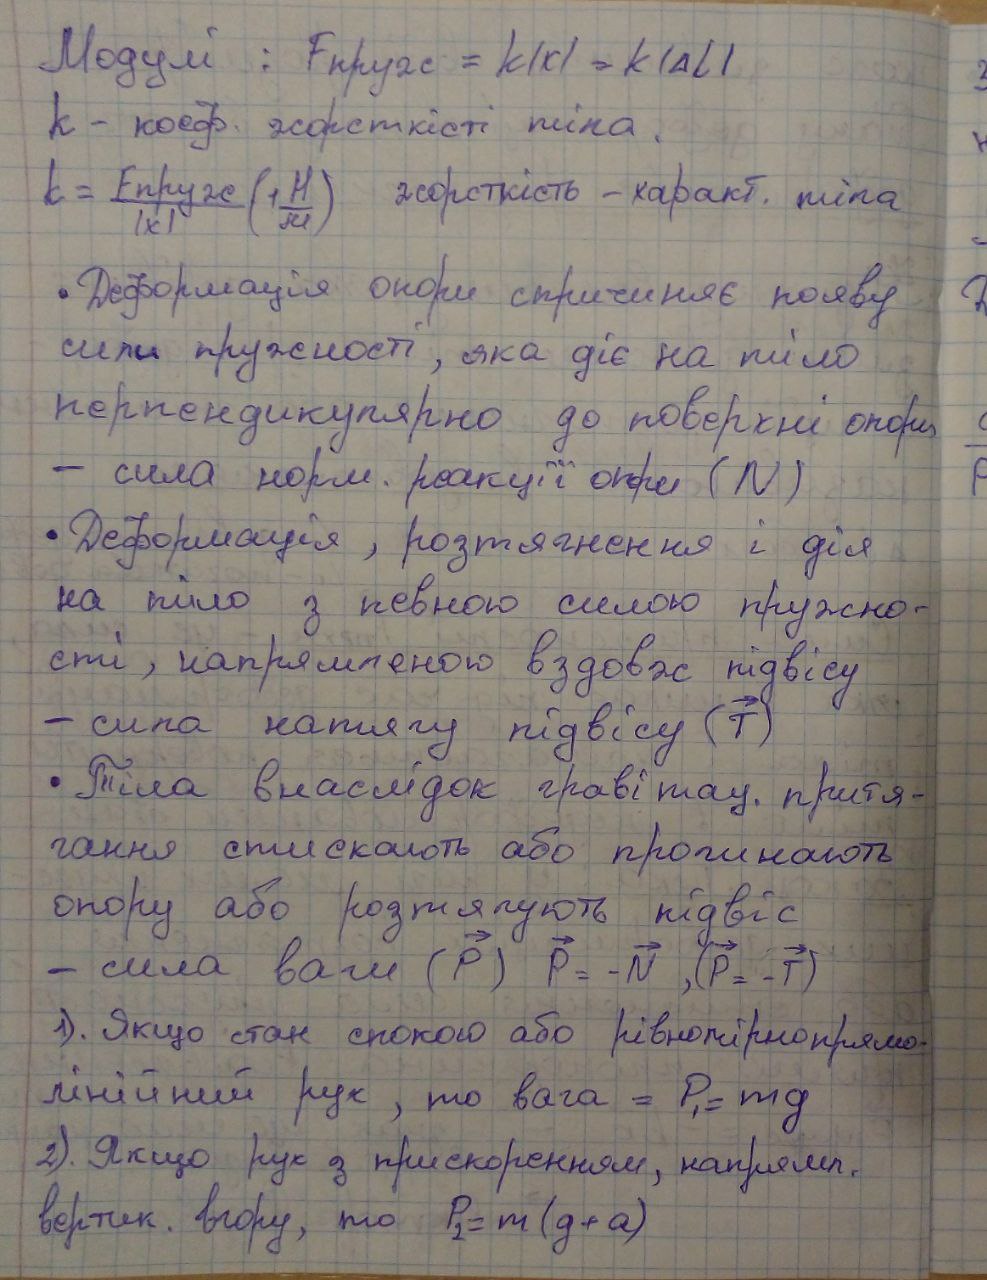 Модулі : Fпруж = k|x| = k|ΔL|
k – коеф. жорсткості тіла.
k = Fпруж/|x| (1 Н/м) жорсткість – характ. тіла
• Деформація опори спричиняє появу
сили пружності, яка діє на тіло
перпендикулярно до поверхні опори
– сила норм. реакції опри (N)
• Деформація, розтягнення і дія
на тіло з певною силою пружно-
сті, напрямленою вздовж підвісу
– сила натягу підвісу (T⃗)
• Тіла внаслідок гравітац. притя-
гання стискають або прогинають
опору або розтягують підвіс
– сила ваги (P⃗) P⃗ = -N⃗, (P⃗ = -T⃗)
1). Якщо стан спокою або рівномірнопрямо-
лінійний рух, то вага = P₁ = mg
2). Якщо рух з прискоренням, напрямл.
вертик. вгору, то P₂ = m(g+a)